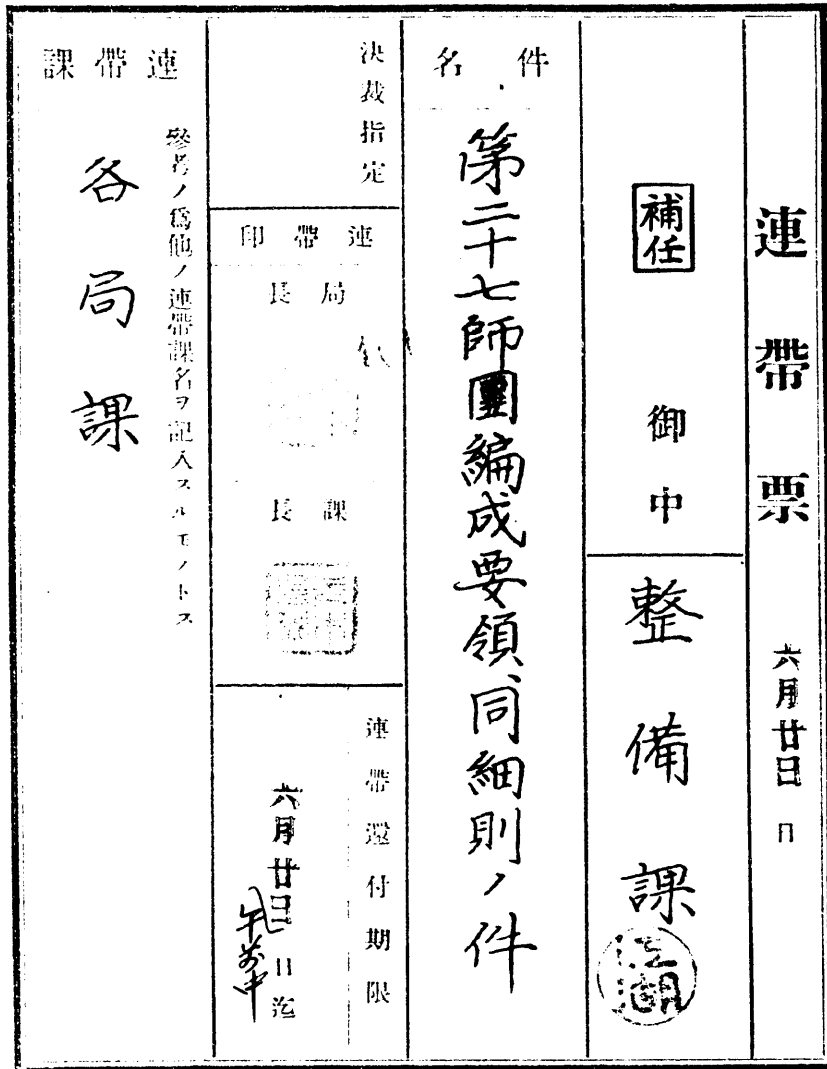 連帶票
六月廿日 日
補任
御中
整備課
件名
第二十七師團編成要領、同細則ノ件
決裁指定
連帶印
局長
課長
連帶還付期限
六月廿 日迄
午前中
連帶課
參考ノ爲他ノ連帶課名ヲ記入スルモノトス
各局課